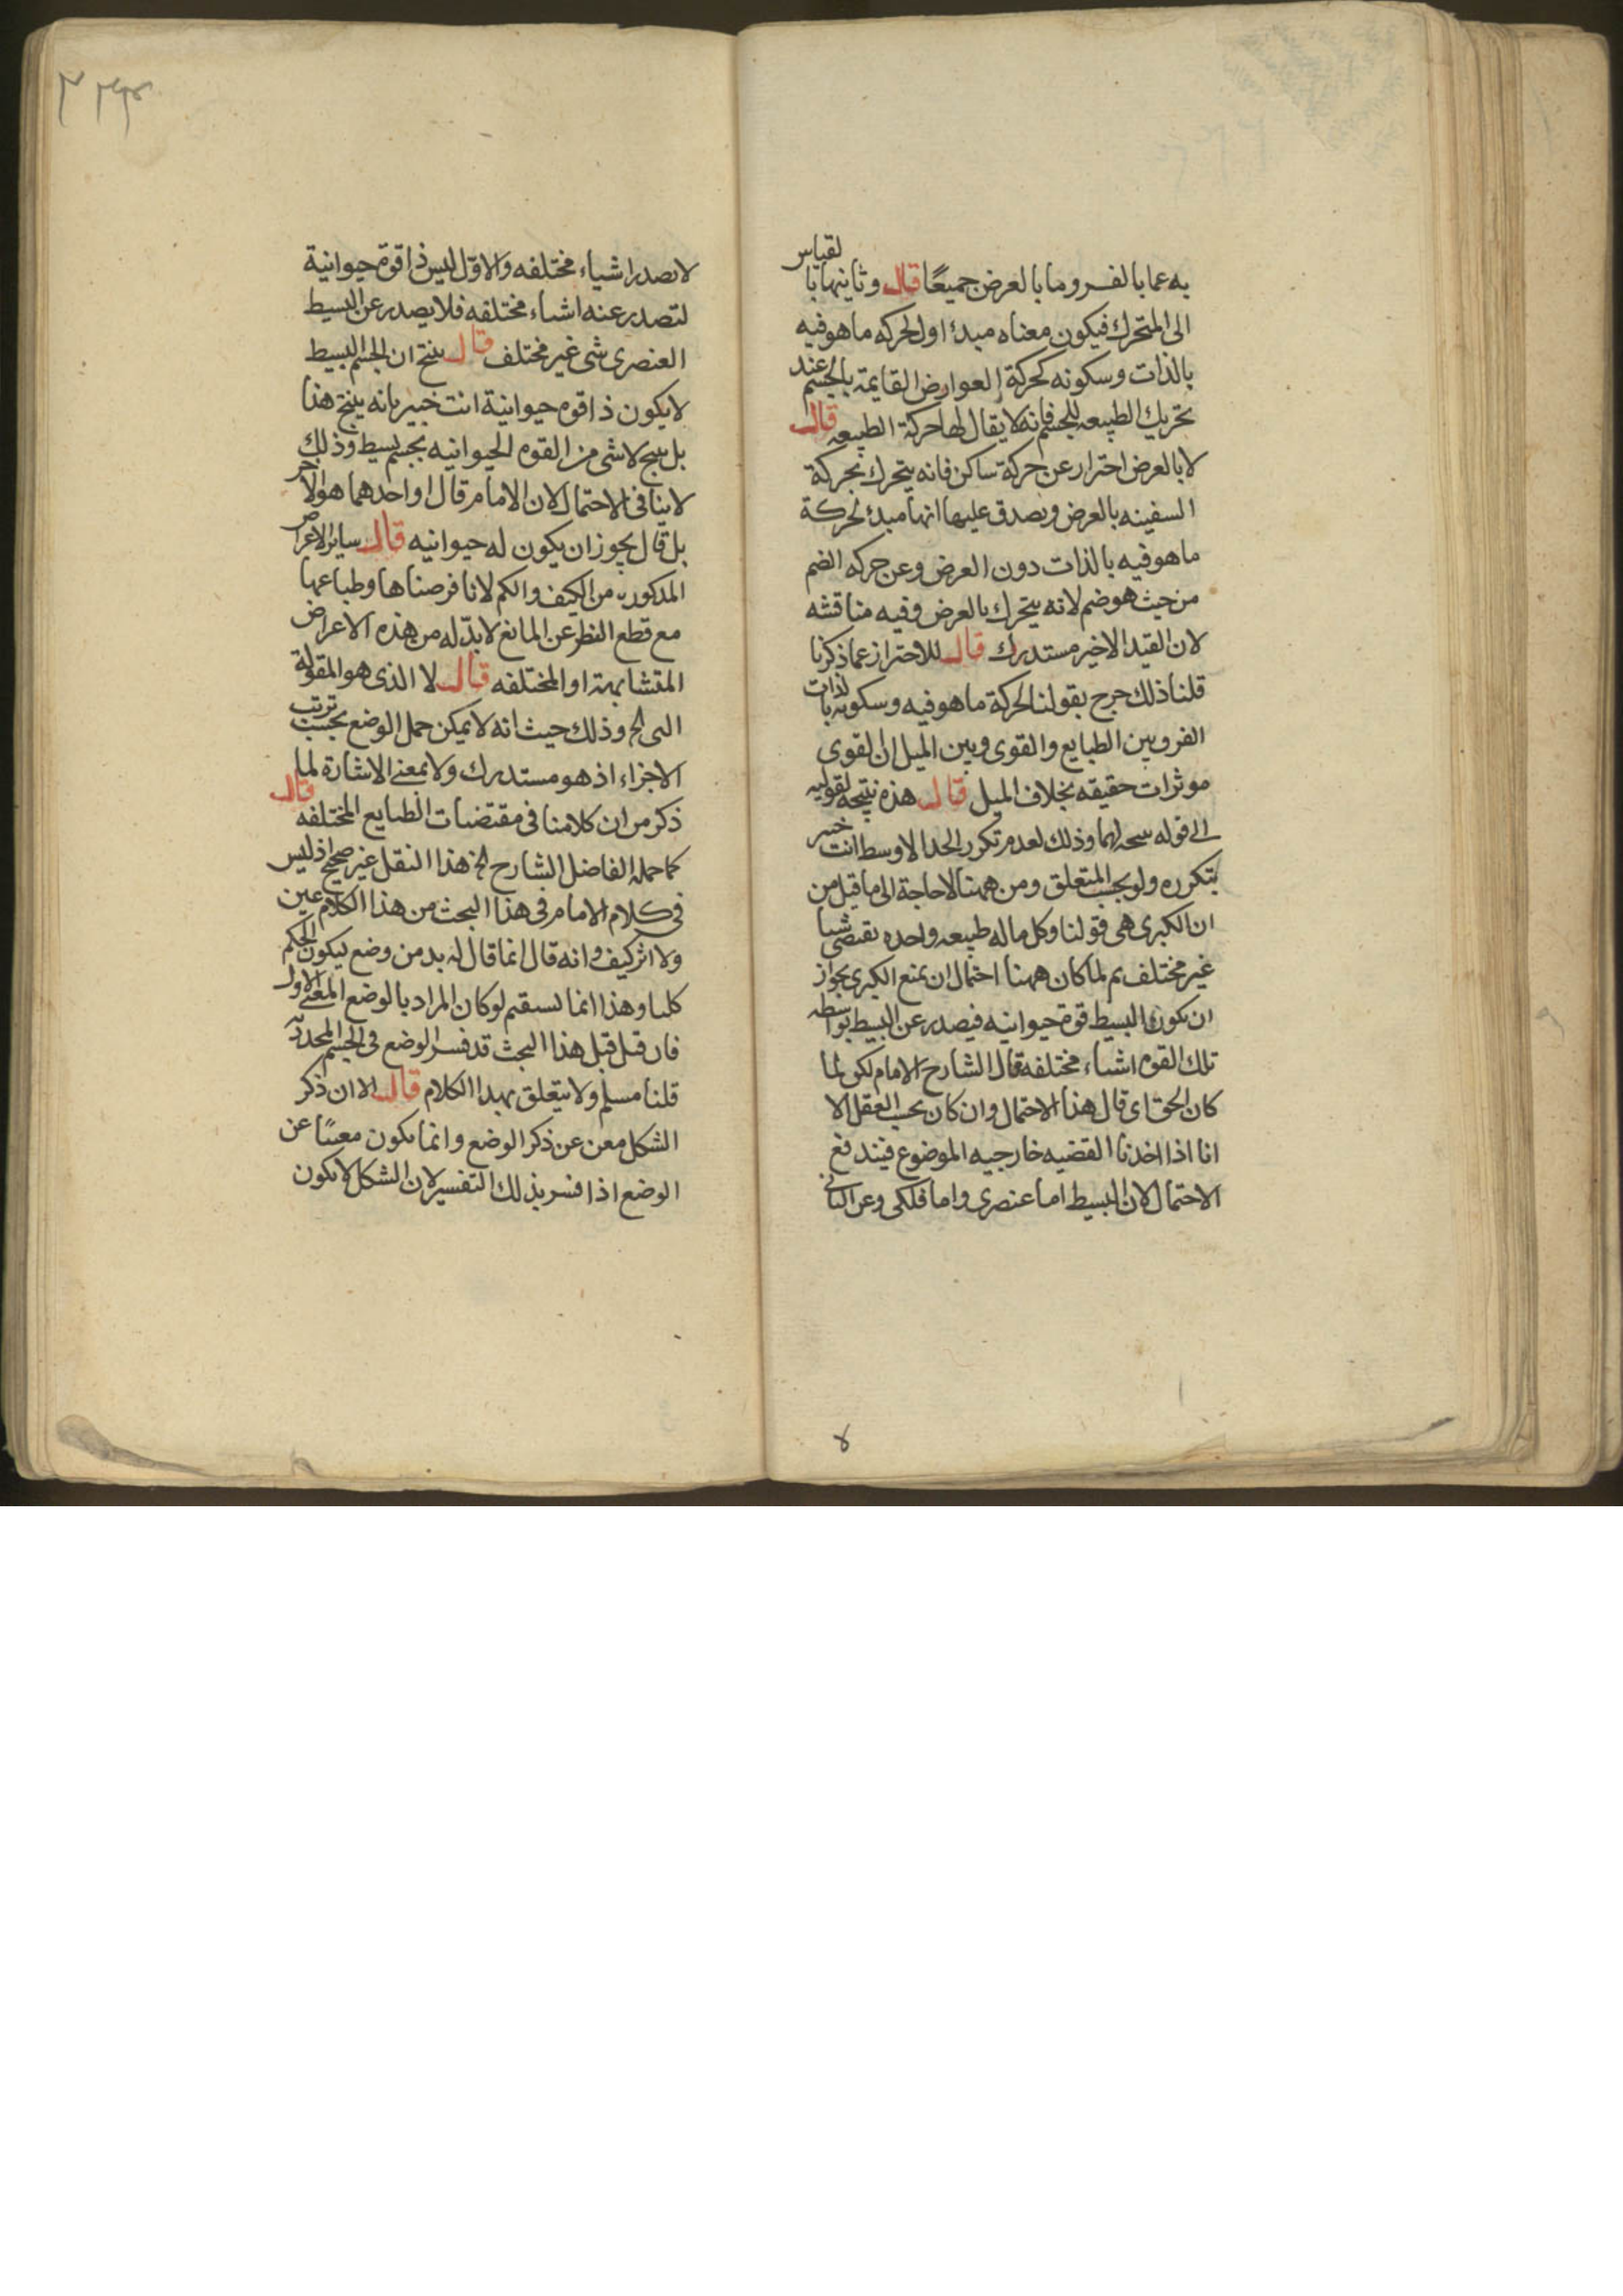 به عما بالفسر وما بالعرض جميعًا قال وثانيها بالقياس
الى المتحرك فيكون معناه مبدءا اول لحركه ما هو فيه
بالذات وسكونه كحركة العوارض القايمة بالجسم عند
تحريك الطبيعه للجسم فانه لا يقال لها حركة الطبيعه قال
لا بالعرض احتراز عن حركة ساكن فانه يتحرك بحركة
السفينه بالعرض ويصدق عليها انها مبدء لحركة
ما هو فيه بالذات دون العرض وعن حركه الضم
من حيث هو ضم لانه يتحرك بالعرض وفيه مناقشه
لان القيد الاخير مستدرك قال للاحتراز عما ذكرنا
قلنا ذلك خرج بقولنا لحركة ما هو فيه وسكونه بالذات
الفر وبين الطبايع والقوى وبين الميل ان القوى
موثرات حقيقه بخلاف الميل قال هذه نتيجه لقوليه
الى قوله وذلك لعدم تكرر الحد الاوسط انت خبير
بتكرره ولو بحسب المتعلق ومن ههنا لا حاجة الى ما قيل من
ان الكبرى هى قولنا وكل ما له طبيعه واحده تقتضى شيا
غير مختلف ثم لما كان ههنا احتمال ان يمنع الكبرى بجواز
ان يكون للبسيط قوة حيوانيه فيصدر عن البسيط بواسطه
تلك القوه اشياء مختلفه قال الشارح الامام لكن لما
كان الحق اى قال هذا الاحتمال وان كان بحسب العقل الا
انا اذا اخذنا القضيه خارجيه الموضوع فيندفع
الاحتمال لان البسيط اما عنصرى واما فلكى وعن الثانى
٢٣٣
لا يصدر اشياء مختلفه والاول ليس ذا قوة حيوانية
لتصدر عنه اشياء مختلفه فلا يصدر عن البسيط
العنصرى شى غير مختلف قال ينتج ان الجسم البسيط
لا يكون ذا قوه حيوانية انت خبير بانه ينتج هذا
بل ينتج لا شى من القوه الحيوانيه بجسم بسيط وذلك
لا ينافى الاحتمال لان الامام قال او احدهما هو الاخر
بل قال يجوز ان يكون له حيوانيه قال ساير الاعراض
المذكوره من الكيف والكم لانا فرضناها وطباعها
مع قطع النظر عن المانع لا بد له من هذه الاعراض
المتشابهة او المختلفه قال لا الذى هو المقولة
التى الخ وذلك حيث انه لا يمكن حمل الوضع بحسب ترتب
الاجزاء اذ هو مستدرك ولا بمعنى الاشارة لما
ذكر من ان كلامنا فى مقتضيات الطبايع المختلفه قال
كما حمله الفاضل الشارح الخ هذا النقل غير صحيح اذ ليس
فى كلام الامام فى هذا البحث من هذا الكلام عين
ولا اثر كيف وانه قال انما قال له بد من وضع ليكون الحكم
كليا وهذا انما يستقيم لو كان المراد بالوضع المعنى الاول
فان قيل قبل هذا البحث قد فسر الوضع فى الجسم المحدد به
قلنا مسلم ولا يتعلق بهذا الكلام قال الا ان ذكر
الشكل مغن عن ذكر الوضع وانما يكون مغنيًا عن
الوضع اذا فسر بذلك التفسير لان الشكل لا يكون